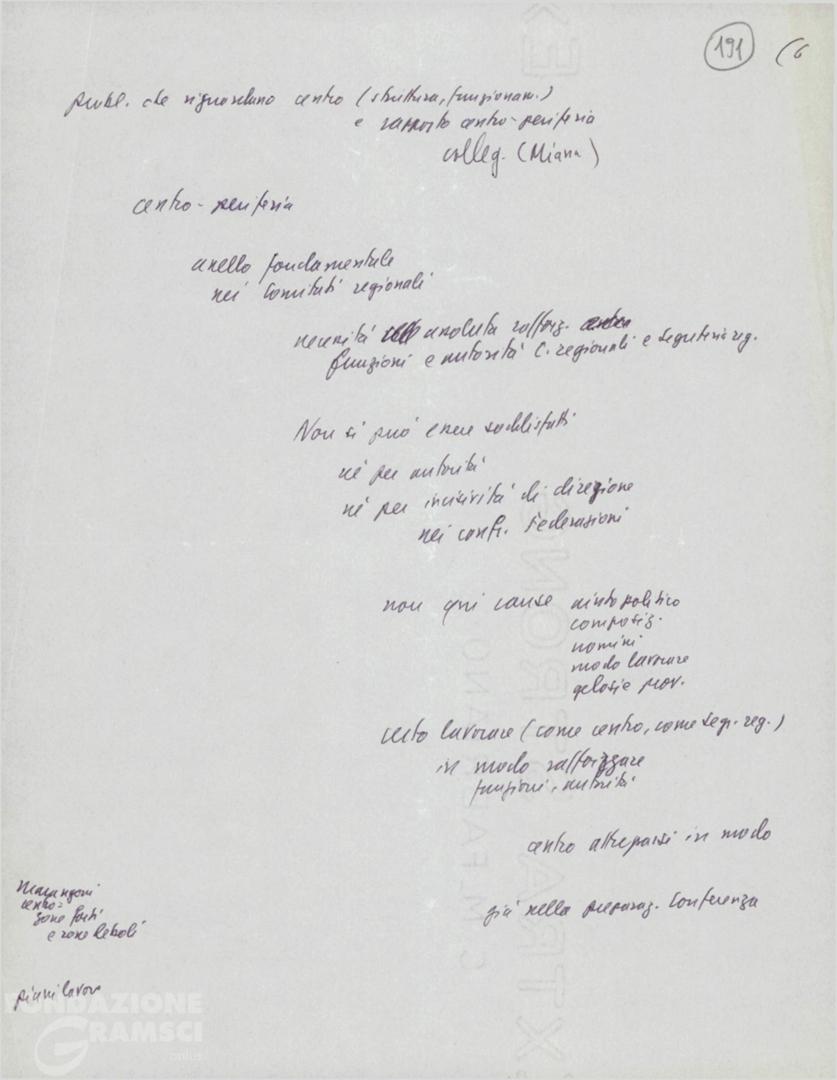 191 (6
probl. che riguardano centro (struttura, funzionam.)
e rapporto centro-periferia
colleg. (Miana)
centro-periferia
anello fondamentale
nei Comitati regionali
necessità assoluta rafforz.
funzioni e autorità C. regionali e Segreteria reg.
Non si può essere soddisfatti
né per autorità
né per incisività di direzione
nei confr. Federazioni
non qui cause aiuto politico
composiz.
uomini
modo lavorare
gelosie prov.
certo lavorare (come centro, come segr. reg.)
in modo rafforzare
funzioni, autorità
centro attrezzarsi in modo
già nella preparaz. Conferenza
Marangoni
centro =
zone forti
e zone deboli
piani lavoro
FONDAZIONE
GRAMSCI
onlus